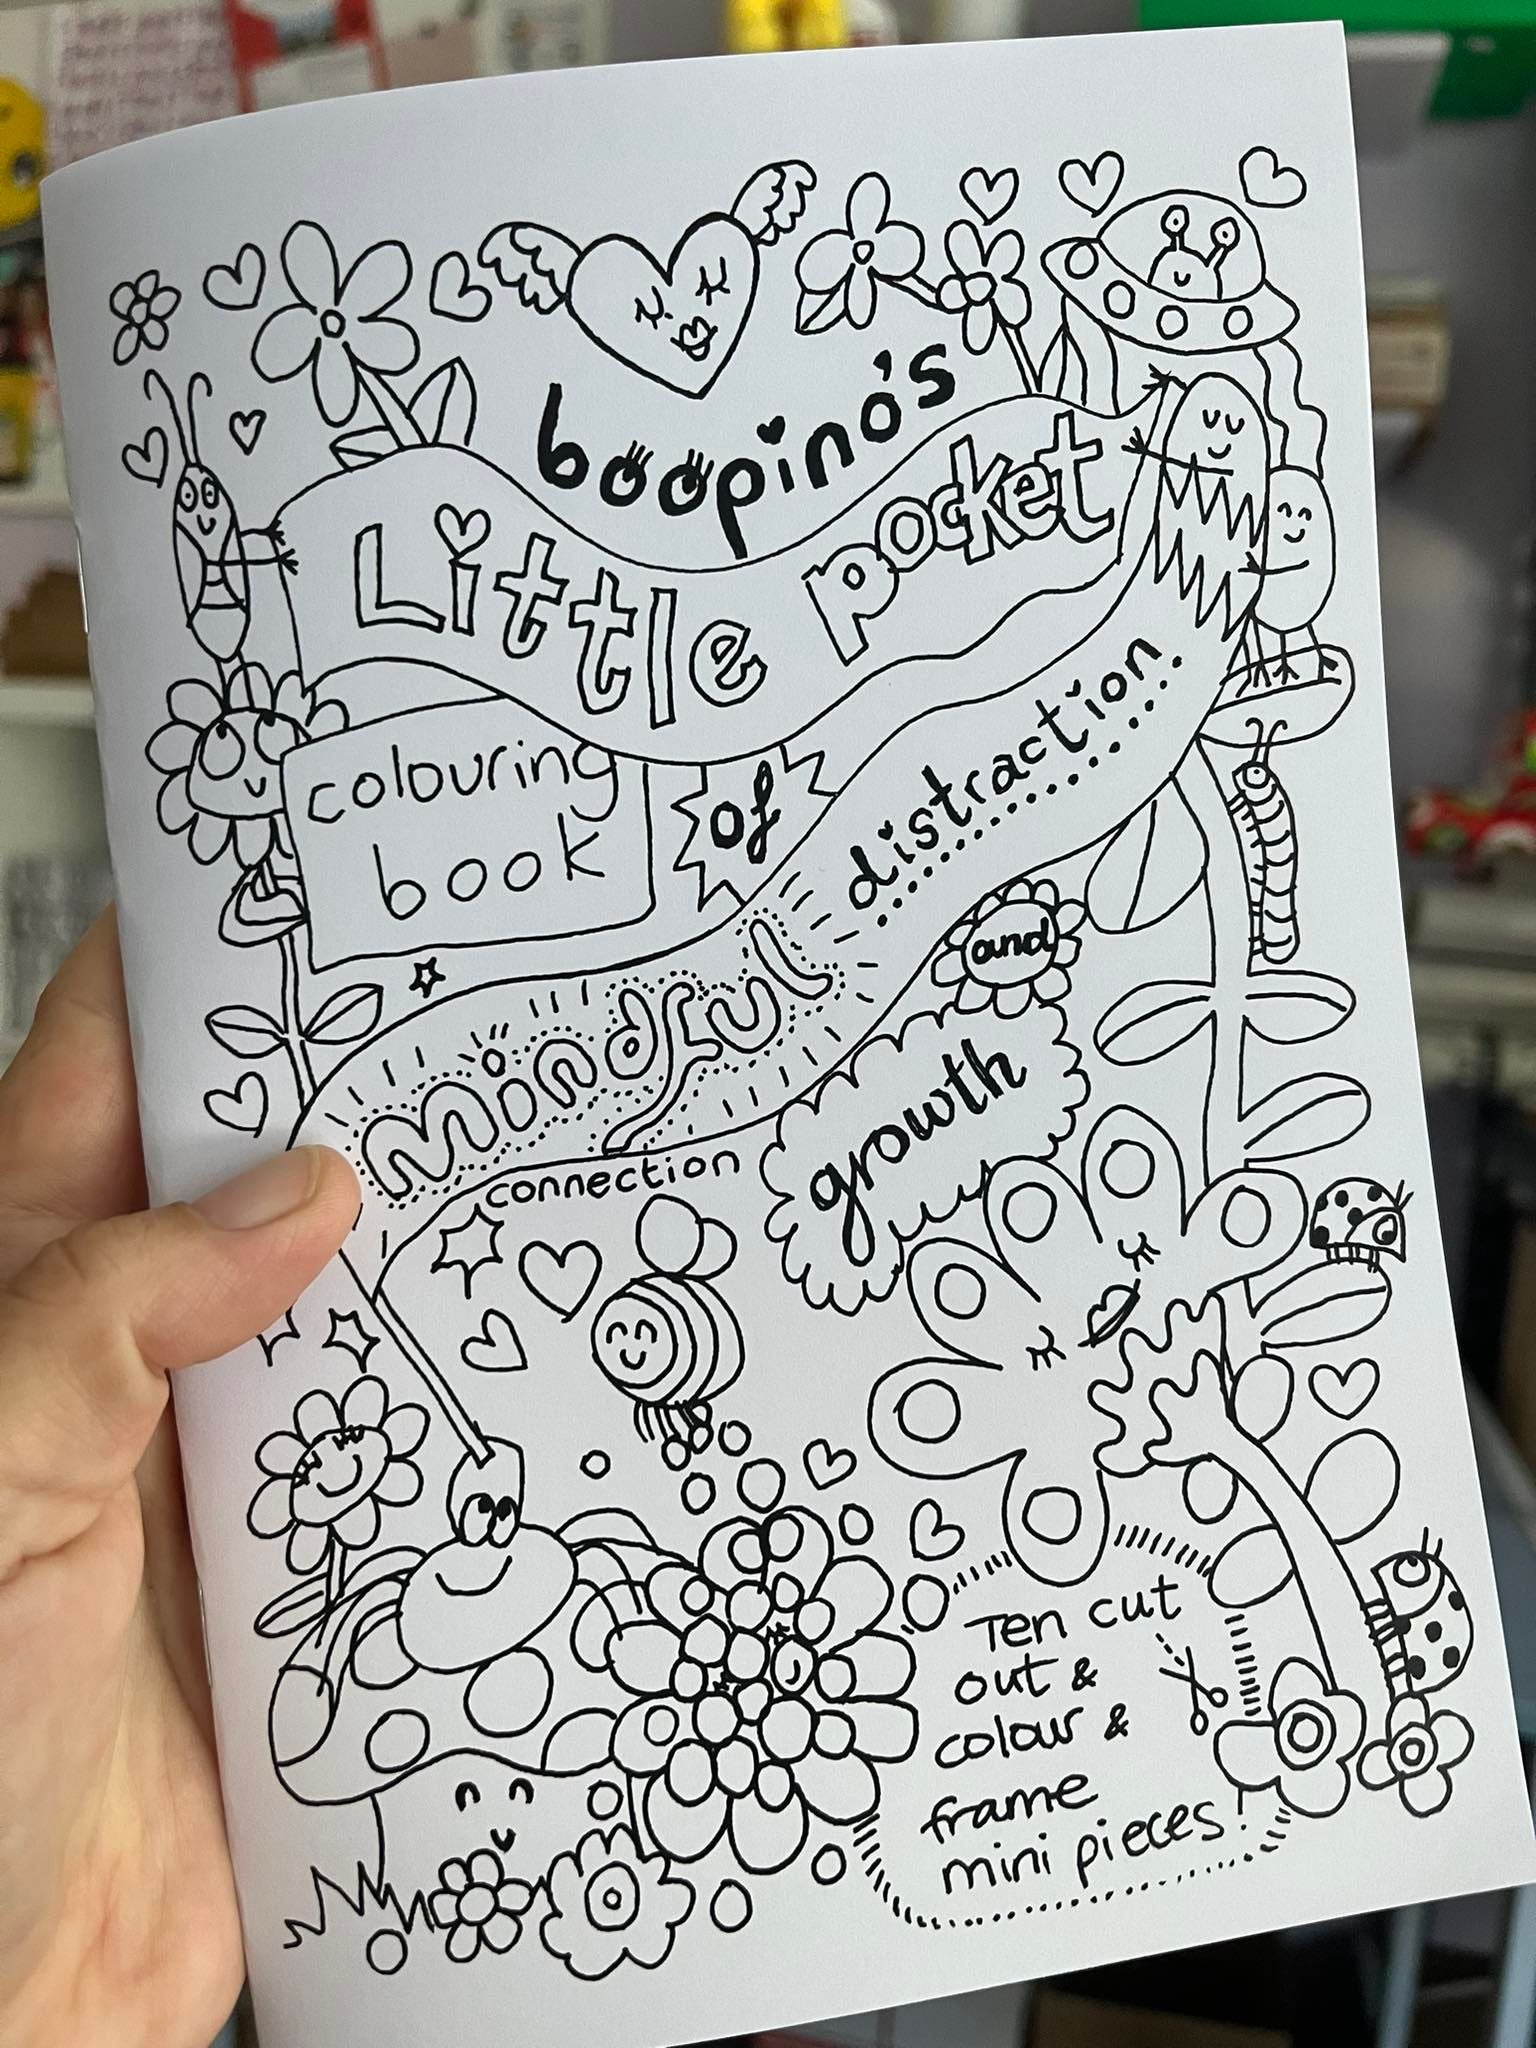 boopino's
Little pocket
colouring
book
of
Mindful distraction
connection
and
growth
Ten cut
out &
colour &
frame
mini pieces!